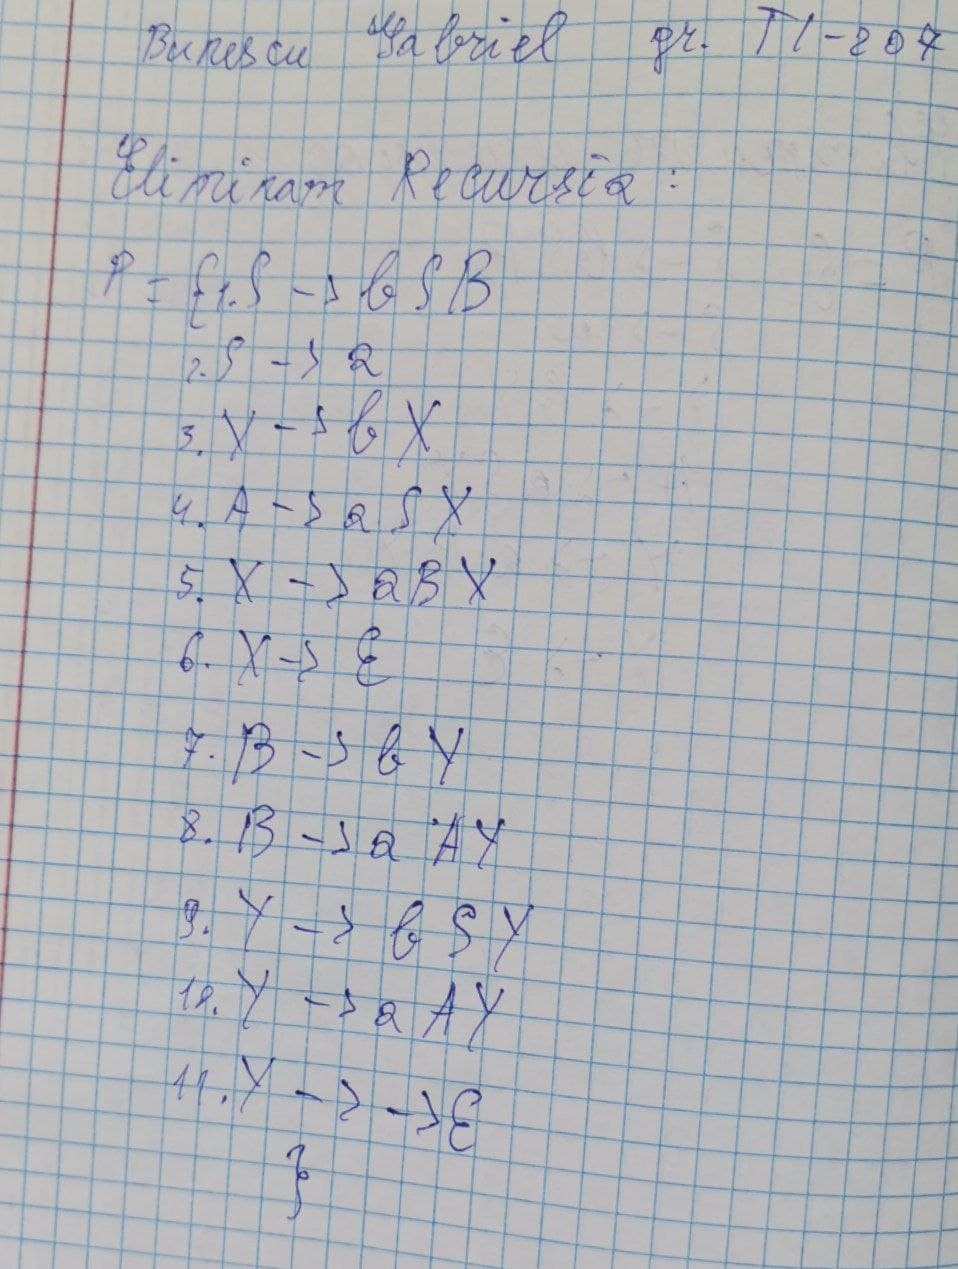 Bunescu Gabriel gr. TI-207
Eliminam Recursia:
P = {1. S -> bSB
2. S -> a
3. X -> bX
4. A -> aSX
5. X -> aBX
6. X -> ε
7. B -> bY
8. B -> aAY
9. Y -> bSY
10. Y -> aAY
11. Y -> -> ε
}